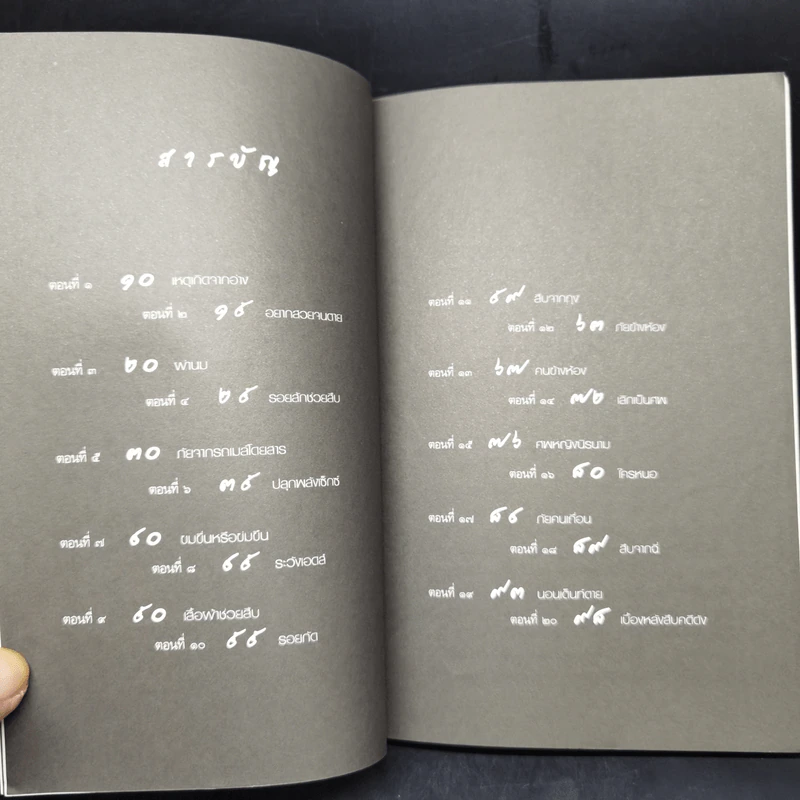 สารบัญ
ตอนที่ ๑ ๑๐ เหตุเกิดจากอ่าง
ตอนที่ ๒ ๑๕ อยากสวยจนตาย
ตอนที่ ๓ ๒๐ ผ่านม
ตอนที่ ๔ ๒๕ รอยสักช่วยสืบ
ตอนที่ ๕ ๓๐ ภัยจากรถเมล์โดยสาร
ตอนที่ ๖ ๓๕ ปลุกพลังเซ็กซ์
ตอนที่ ๗ ๔๐ ขมขื่นหรือข่มขืน
ตอนที่ ๘ ๔๕ ระวังเอดส์
ตอนที่ ๙ ๕๐ เสื้อผ้าช่วยสืบ
ตอนที่ ๑๐ ๕๕ รอยกัด
ตอนที่ ๑๑ ๕๙ สืบจากถุง
ตอนที่ ๑๒ ๖๓ ภัยข้างห้อง
ตอนที่ ๑๓ ๖๗ คนข้างห้อง
ตอนที่ ๑๔ ๗๒ เลิกเป็นศพ
ตอนที่ ๑๕ ๗๖ ศพหญิงนิรนาม
ตอนที่ ๑๖ ๘๐ ใครหนอ
ตอนที่ ๑๗ ๘๔ ภัยคนเถื่อน
ตอนที่ ๑๘ ๘๙ สืบจากฉี่
ตอนที่ ๑๙ ๙๓ นอนเต็นท์ตาย
ตอนที่ ๒๐ ๙๘ เบื้องหลังสืบคดีดัง